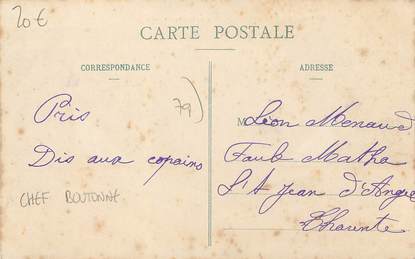 20€
CARTE POSTALE
CORRESPONDANCE
ADRESSE
Pris
79)
Dis aux copains
CHEF BOUTONNE
M Léon Menaud
Faub Matha
St Jean d'Angé
Charente